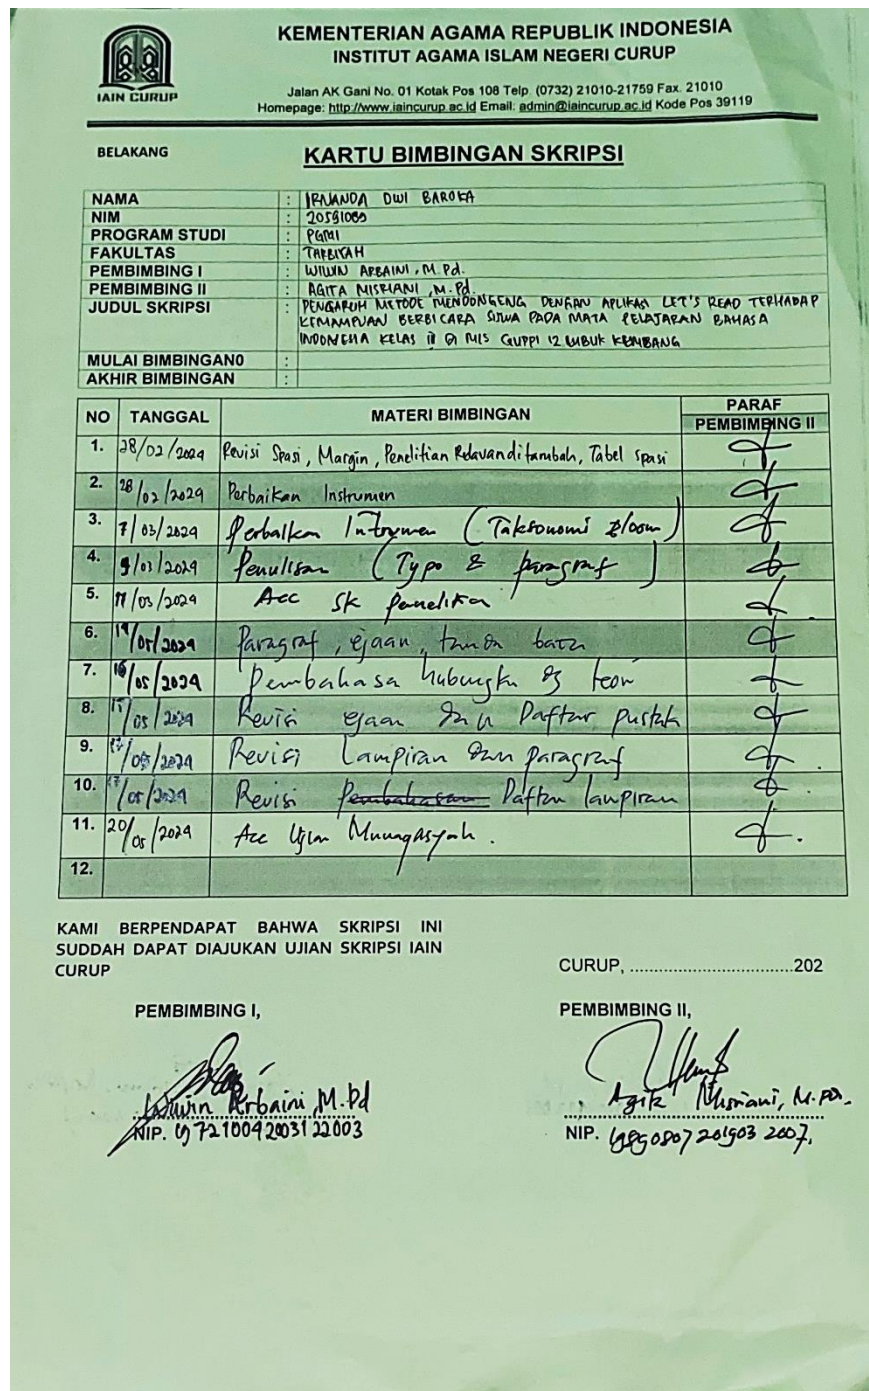 KEMENTERIAN AGAMA REPUBLIK INDONESIA
INSTITUT AGAMA ISLAM NEGERI CURUP
IAIN CURUP
Jalan AK Gani No. 01 Kotak Pos 108 Telp. (0732) 21010-21759 Fax. 21010
Homepage: http://www.iaincurup.ac.id Email: admin@iaincurup.ac.id Kode Pos 39119
BELAKANG
KARTU BIMBINGAN SKRIPSI
NAMA : IRNANDA DWI BAROKA
NIM :
PROGRAM STUDI : PGMI
FAKULTAS : TARBIYAH
PEMBIMBING I : WIWIN ARBAINI, M.Pd.
PEMBIMBING II : AGITA MISRIANI, M.Pd.
JUDUL SKRIPSI : PENGARUH METODE MENDONGENG DENGAN APLIKASI LET'S READ TERHADAP
KEMAMPUAN BERBICARA SISWA PADA MATA PELAJARAN BAHASA
INDONESIA KELAS III DI MIS GUPPI 12 LUBUK KEMBANG
MULAI BIMBINGAN0 :
AKHIR BIMBINGAN :
NO TANGGAL MATERI BIMBINGAN PARAF
PEMBIMBING II
1. 28/02/2024 Revisi Spasi, Margin, Penelitian Relavan ditambah, Tabel spasi
2. 28/02/2024 Perbaikan Instrumen
3. 7/03/2024 Perbaikan Intrumen (Taksonomi Bloom)
4. 9/03/2024 Penulisan (Typo & paragraf)
5. 11/03/2024 Acc SK penelitian
6. /05/2024 Paragraf, ejaan, tanda baca
7. /05/2024 Pembahasa hubungkn dg teori
8. 15/05/2024 Revisi ejaan dan Daftar pustak
9. /05/2024 Revisi Lampiran dan paragraf
10. 17/05/2024 Revisi Pembahasan Daftar lampiran
11. 20/05/2024 Acc Ujian Munaqasyah.
12.
KAMI BERPENDAPAT BAHWA SKRIPSI INI
SUDDAH DAPAT DIAJUKAN UJIAN SKRIPSI IAIN
CURUP
CURUP, .................................202
PEMBIMBING I, PEMBIMBING II,
Wiwin Arbaini, M.Pd Agita Misriani, M.Pd.
NIP. 197210042003122003 NIP. 198908072019032007.